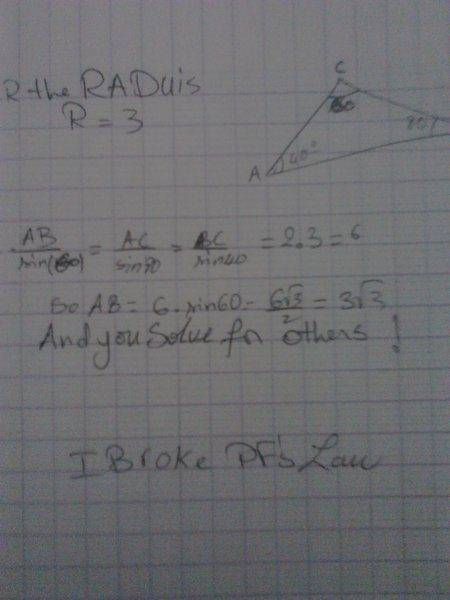 R the RADuis
R = 3
C
60
A 40°
AB/sin(60) = AC/sin80 = BC/sin40 = 2.3 = 6
so AB = 6.sin60 = 6√3/2 = 3√3
And you Solve for others !
I Broke PF's Law